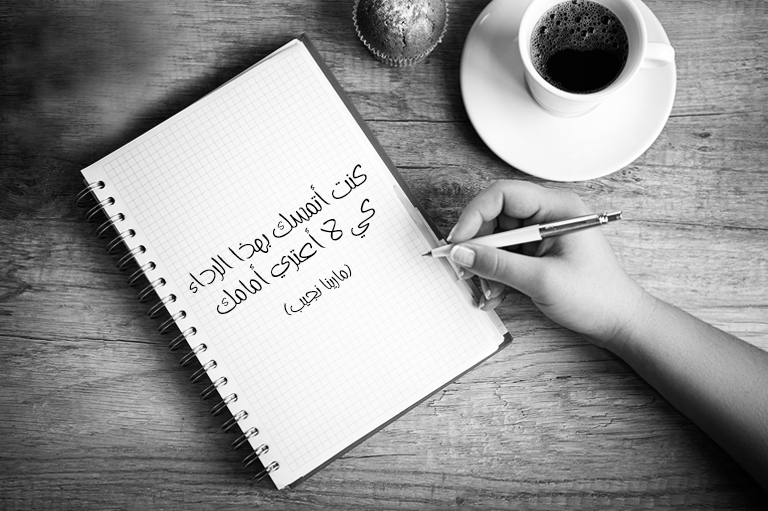 كنت أتمسك بهذا الرداء
كي لا أعتري أمامك
(مارينا نجيب)